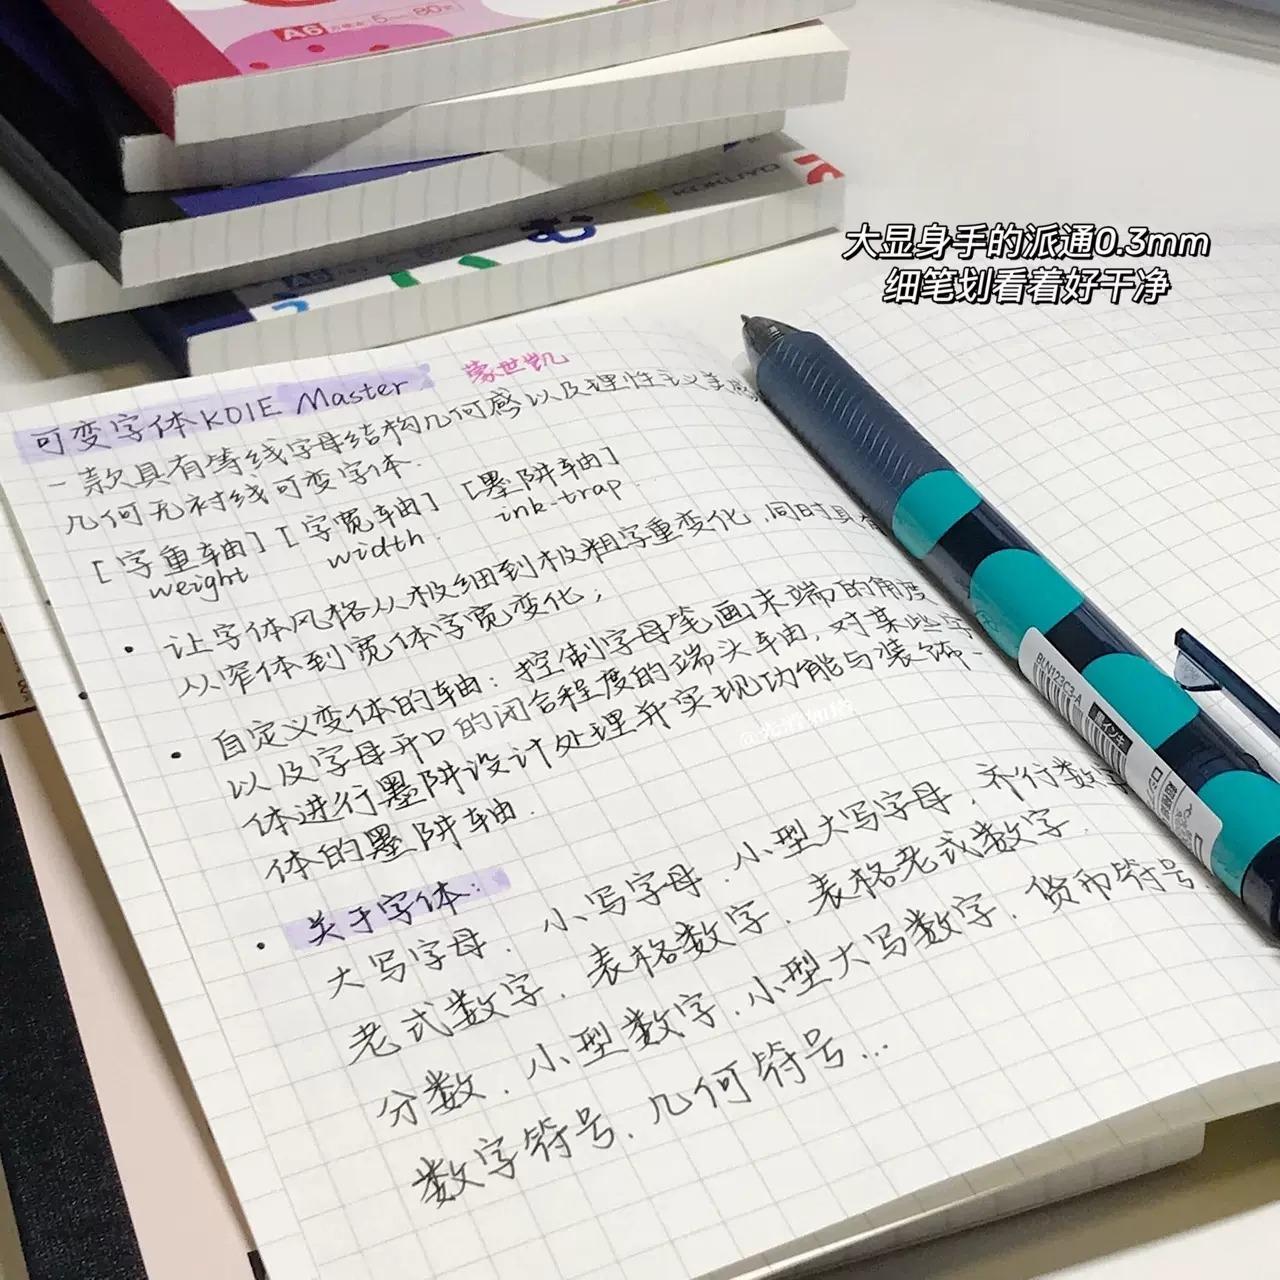 A6 5mm 80
KOKUYO
む
大显身手的派通0.3mm
细笔划看着好干净
可变字体KOIE Master 蒙世凯
一款具有等线字母结构几何感以及理性主义美感
几何无衬线可变字体.
[字重轴] [字宽轴] [墨阱轴]
weight width. ink-trap.
• 让字体风格从极细到极粗字重变化,同时具有
从窄体到宽体字宽变化;
• 自定义变体的轴: 控制字母笔画末端的角度
以及字母开口的闭合程度的端头轴,对某些字
体进行墨阱设计处理并实现功能与装饰一
体的墨阱轴.
• 关于字体:
大写字母、小写字母、小型大写字母、齐行数字
老式数字、表格数字、表格老式数字、
分数、小型数字、小型大写数字、货币符号、
数字符号、几何符号...
BLN123C3-A
黒インキ